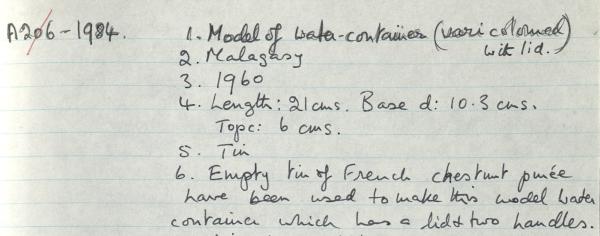 A206-1984. 1. Model of water-container (varicoloured)
with lid.
2. Malagasy
3. 1960
4. Length: 21cms. Base d: 10.3 cms.
Top c: 6 cms.
5. Tin
6. Empty tin of French chestnut purée
have been used to make this model water
container which has a lid & two handles.